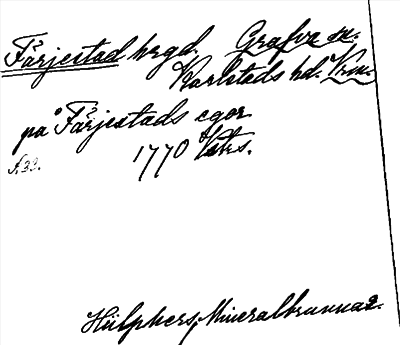 Färjestad hrgd. Grafva sn.
Karlstads hd. Vrm.
på Färjestads egor
1770 Vatrs.
s. 33.
Hülphers, Mineralbrunnar.